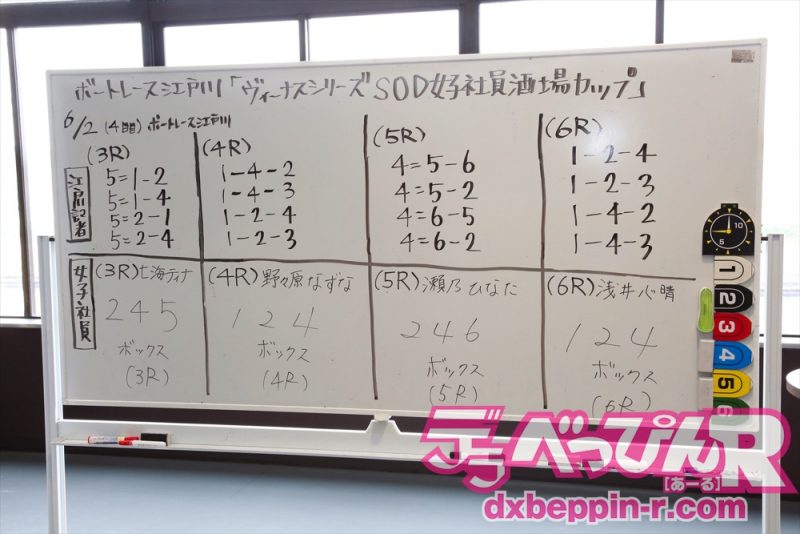 ボートレース江戸川「ヴィーナスシリーズSOD女子社員酒場カップ」
6/2 (4日目) ボートレース江戸川
江戸川記者
(3R)
5=1-2
5=1-4
5=2-1
5=2-4
(4R)
1-4-2
1-4-3
1-2-4
1-2-3
(5R)
4=5-6
4=5-2
4=6-5
4=6-2
(6R)
1-2-4
1-2-3
1-4-2
1-4-3
女子社員
(3R)七海ティナ
245
ボックス
(3R)
(4R)野々原なずな
124
ボックス
(4R)
(5R)瀬乃ひなた
246
ボックス
(5R)
(6R)浅井心晴
124
ボックス
(6R)
10
5
1
2
3
4
5
6
デラべっぴんR
[あーる]
dxbeppin-r.com